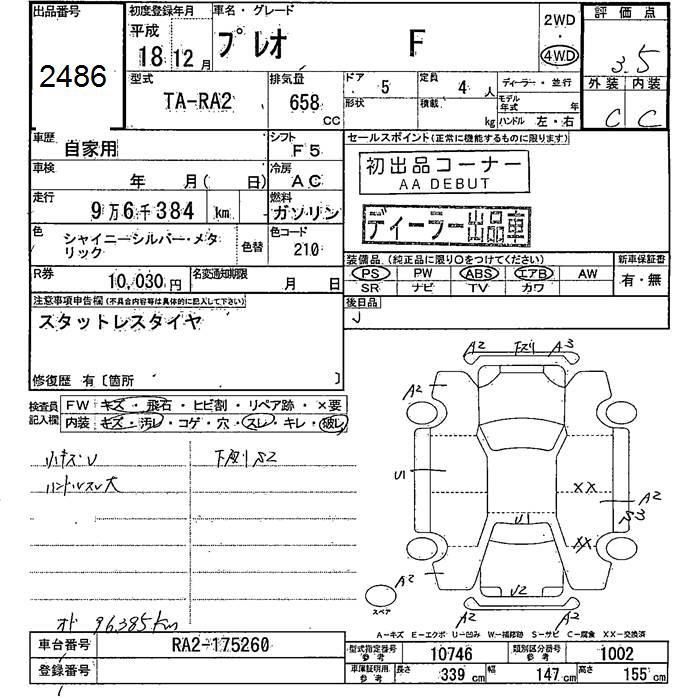 出品番号
2486
初度登録年月
平成
18 12 月
車名・グレード
プレオ F
2WD
・
4WD
評価点
3.5
外装 内装
C C
型式
TA-RA2
排気量
658
cc
ドア 5
形状
定員 4 人
積載 kg
ディーラー・並行
モデル年式 年
ハンドル 左・右
車歴
自家用
シフト
F5
車検
年 月( 日)
冷房
AC
走行
9万6千384 km
燃料
ガソリン
色
シャイニーシルバー・メタリック
色替
色コード
210
R券
10,030円
名変通知期限
月 日
セールスポイント(正常に機能するものに限ります)
初出品コーナー
AA DEBUT
ディーラー出品車
装備品 (純正品に限り○をつけてください)
新車保証書
PS PW ABS エアB AW
SR ナビ TV カワ
有・無
後日品
注意事項申告欄(不具合内容等は具体的に記入して下さい)
スタットレスタイヤ
修復歴 有〔箇所 〕
検査員記入欄
FW キズ・飛石・ヒビ割・リペア跡・×要
内装 キズ・汚レ・コゲ・穴・スレ・キレ・破レ
小キズU
下廻りS2
ハンドルスレ大
A2 下ズリ A3
A2
U1
XX
A2
S3
U1
XX
A2
U2
A2 A2
スペア
オド 96385km
A―キズ E―エクボ U―凹み W―補修跡 S―サビ C―腐食 XX―交換済
車台番号
RA2-175260
登録番号
型式指定番号
参考
10746
類別区分番号
参考
1002
車庫証明用
参考
長さ 339 cm 幅 147 cm 高さ 155 cm